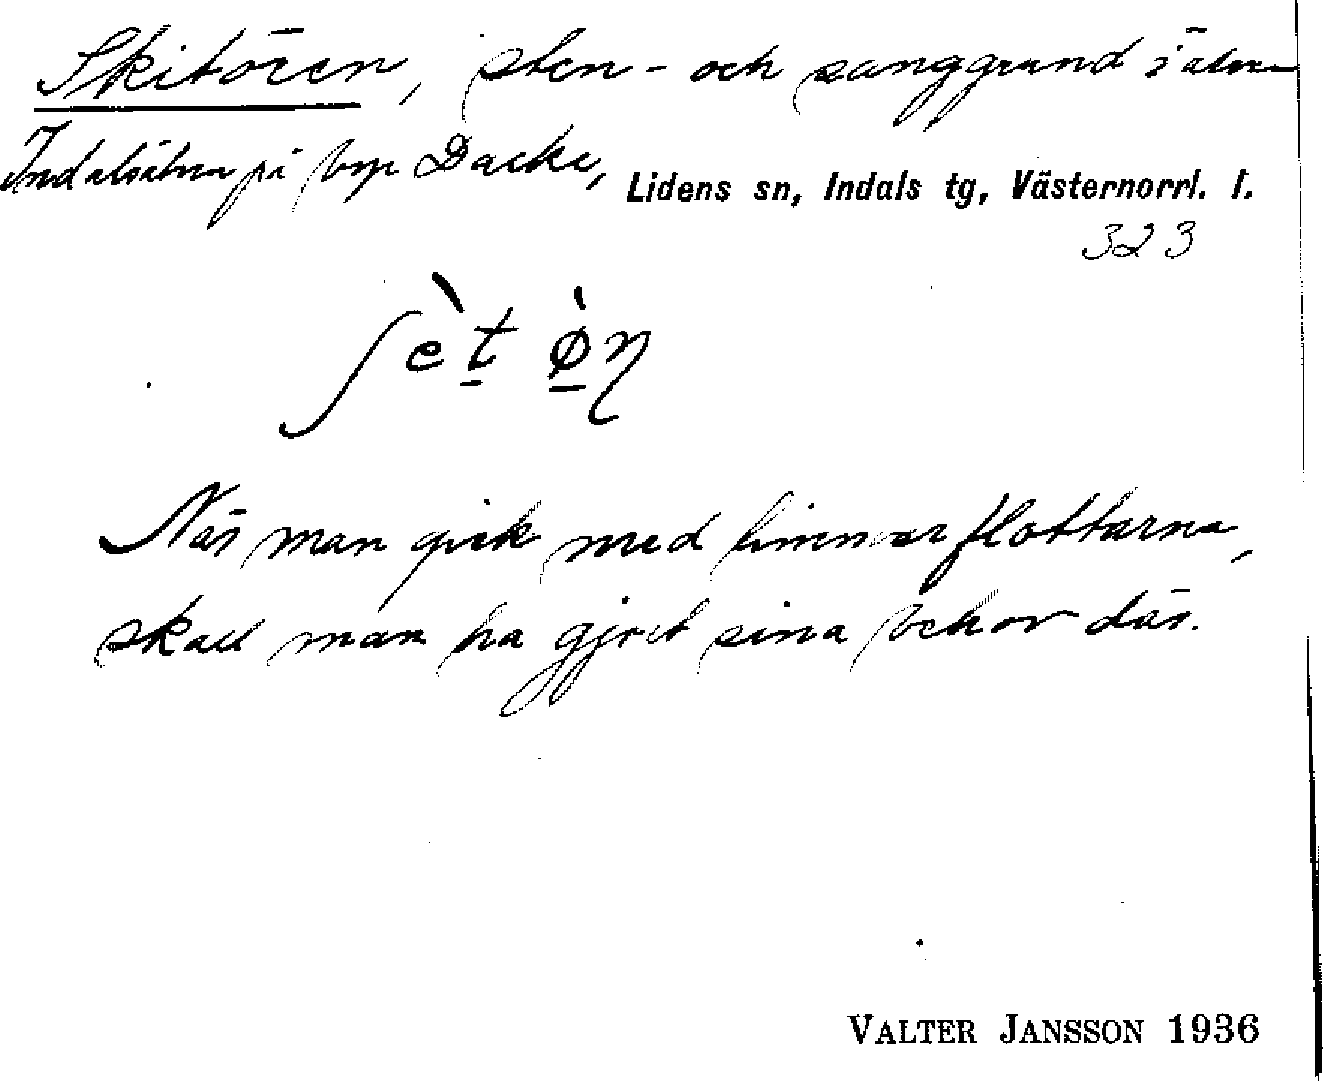 Skitören, sten- och sanggrund i älven
Indalsälven på byn Backe,
Lidens sn, Indals tg, Västernorrl. l.
323
ʃèt ø̀n
När man gick med timmerflottarna,
skall man ha gjort sina behov där.
VALTER JANSSON 1936